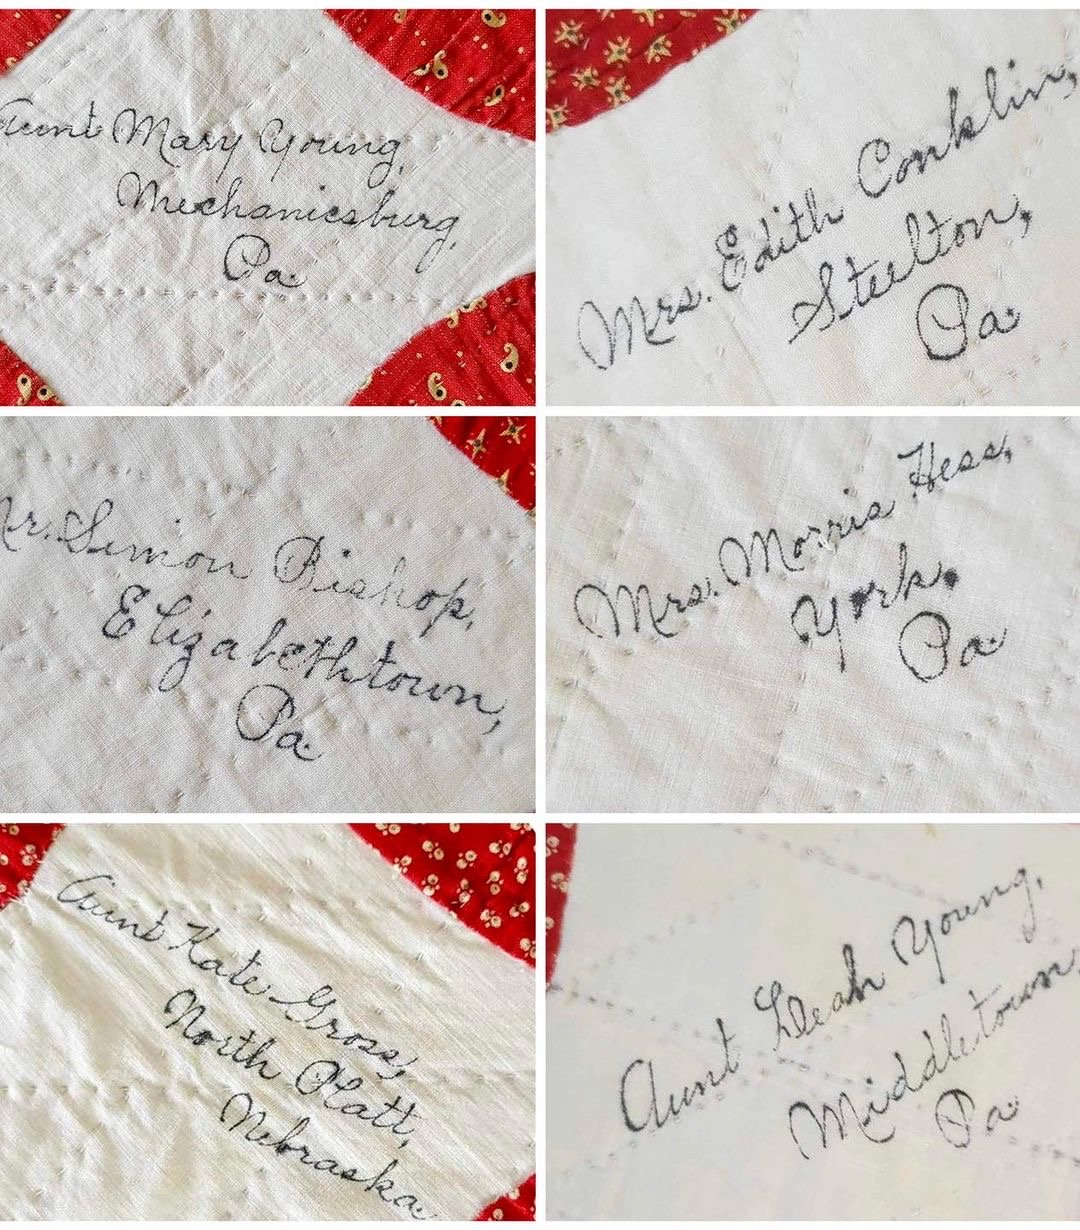 Aunt Mary Young,
Mechanicsburg,
Pa.
Mrs. Edith Conklin,
Steelton,
Pa.
Mr. Simon Bishop,
Elizabethtown,
Pa.
Mrs. Morris Hess,
York,
Pa.
Aunt Kate Gross,
North Platt,
Nebraska.
Aunt Leah Young,
Middletown,
Pa.